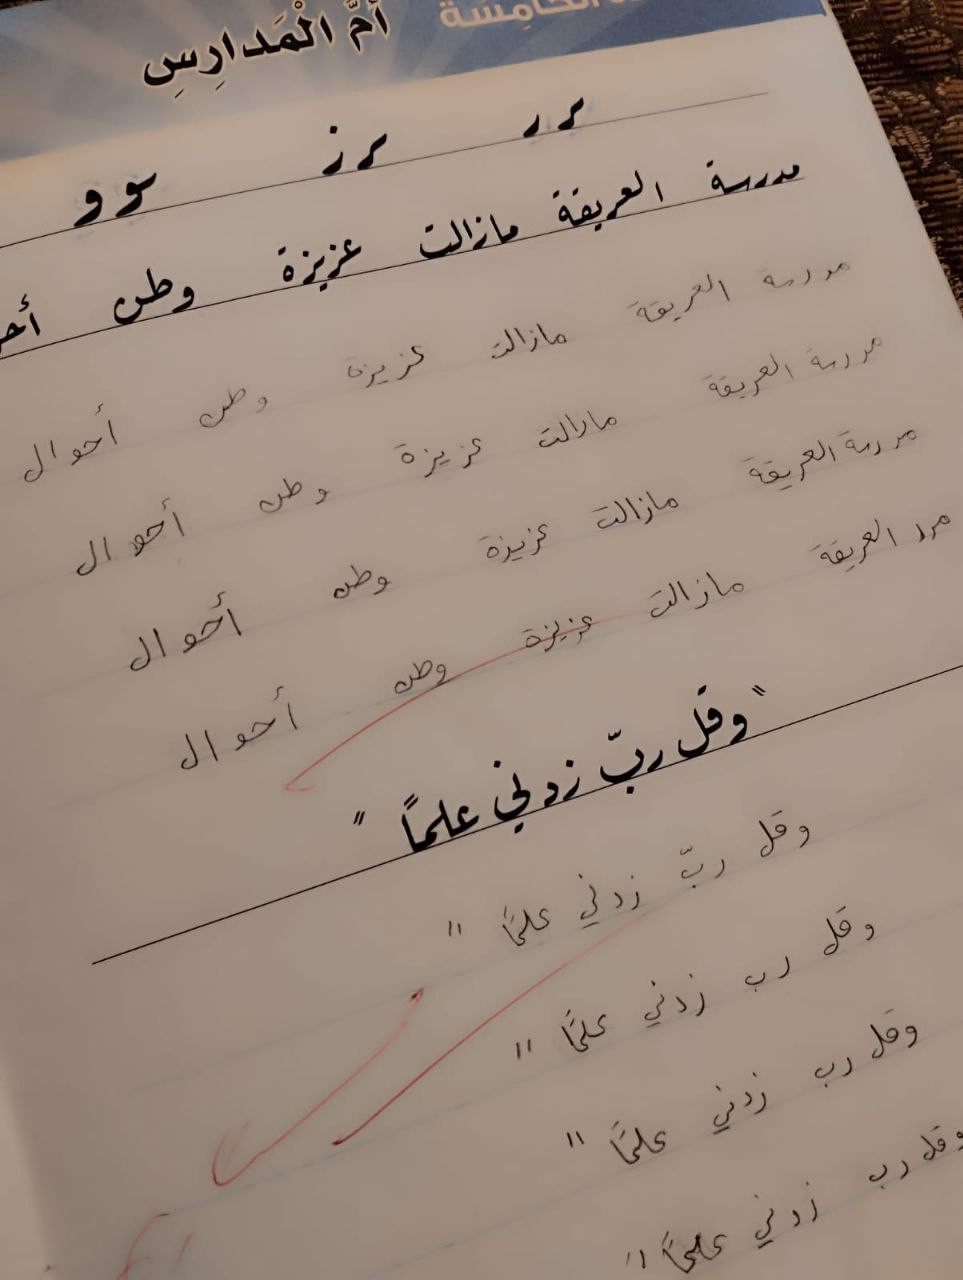 الخامسة أمَّ الْمَدارِسِ
رر رز وو
مدرسة العريقة مازالت عزيزة وطن
مدرسة العريقة مازالت عزيزة وطن أحوال
مدرسة العريقة مازالت عزيزة وطن أحوال
مدرسة العريقة مازالت عزيزة وطن أحوال
العريقة مازالت عزيزة وطن أحوال
"وقل ربّ زدني علماً"
وقل ربّ زدني علمًا "
وقل رب زدني علمًا "
وقل رب زدني علمًا "
وقل رب زدني علمًا "